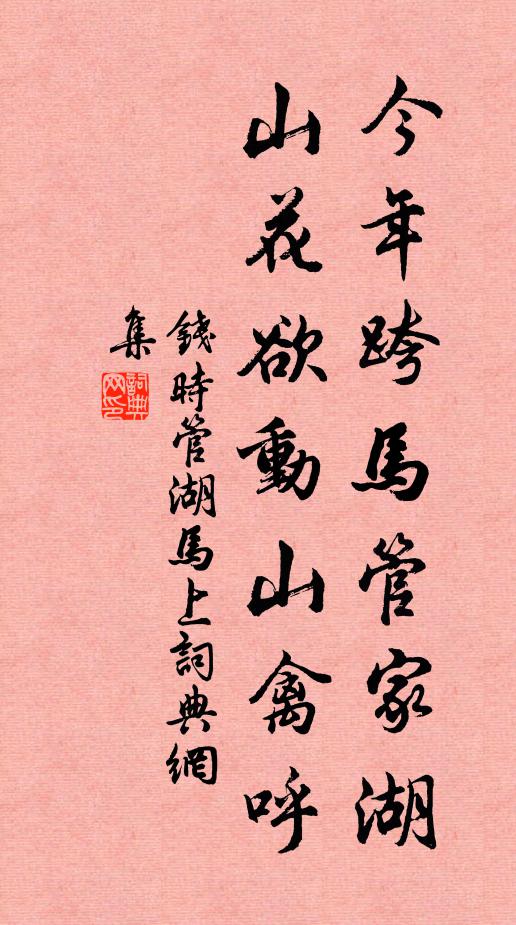 今年跨馬管家湖
山花欲動山禽呼
錢時管湖馬上詞典網
集
詞典
网印